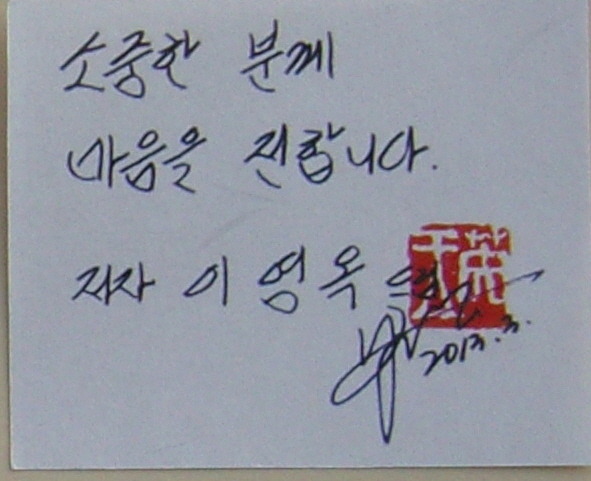 소중한 분께
마음을 전합니다.
저자 이영옥
2013. 3.